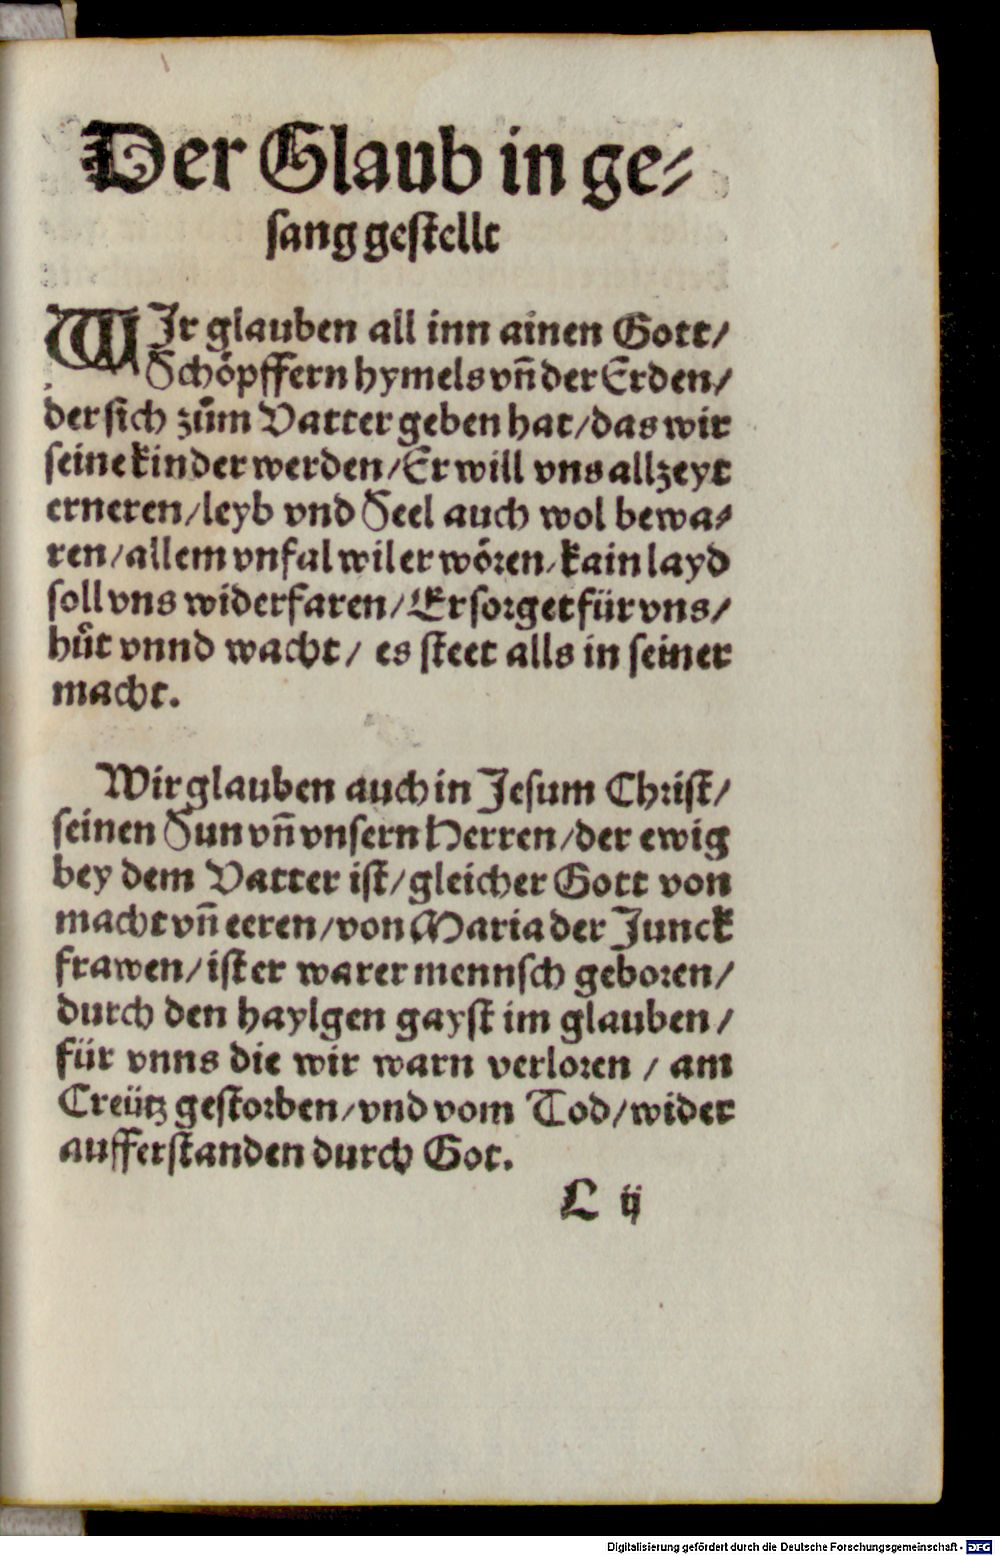 Der Glaub in ge⸗
sang gestellt
WIr glauben all inn ainen Gott/
Schöpffern hymels vn̄ der Erden/
der sich zům Vatter geben hat/das wir
seine kinder werden/Er will vns allzeyt
erneren/leyb vnd Seel auch wol bewa⸗
ren/allem vnfal wil er wören/kain layd
soll vns widerfaren/Er sorget für vns/
hůt vnnd wacht/ es steet alls in seiner
macht.
Wir glauben auch in Jesum Christ/
seinen Sun vn̄ vnsern Herren/der ewig
bey dem Vatter ist/gleicher Gott von
macht vn̄ eeren/von Maria der Junck
frawen/ist er warer mennsch geboren/
durch den haylgen gayst im glauben/
für vnns die wir warn verloren / am
Creütz gestorben/vnd vom Tod/wider
aufferstanden durch Got.
L ij
Digitalisierung gefördert durch die Deutsche Forschungsgemeinschaft - DFG